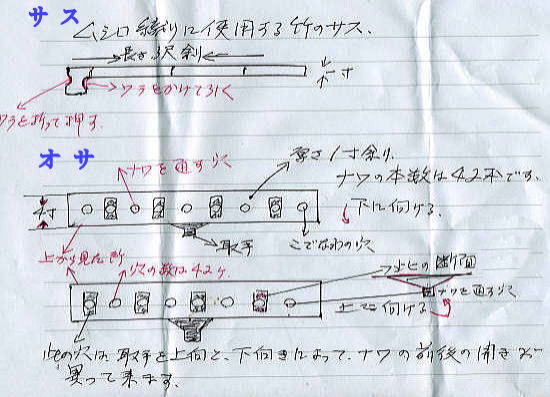 サス
ムシロ織りに使用する竹のサス.
長さ3尺余り
1寸
ワラをかけて引く
ワラを折って押す.
オサ
厚さ1寸余り.
ナワを通す穴
ナワの本数は42本です.
4寸
下に向ける.
取手
こでなわの穴
上から見た所
穴の数は42ケ.
の断面
ナワを通す穴
上に向ける
此の穴は取手を上向と、下向きによって、ナワの前後の開きが
異って来ます.